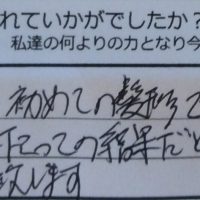 れていかがでしたか?
私達の何よりの力となり今
初めての髪形で
行っての結果だと
致します